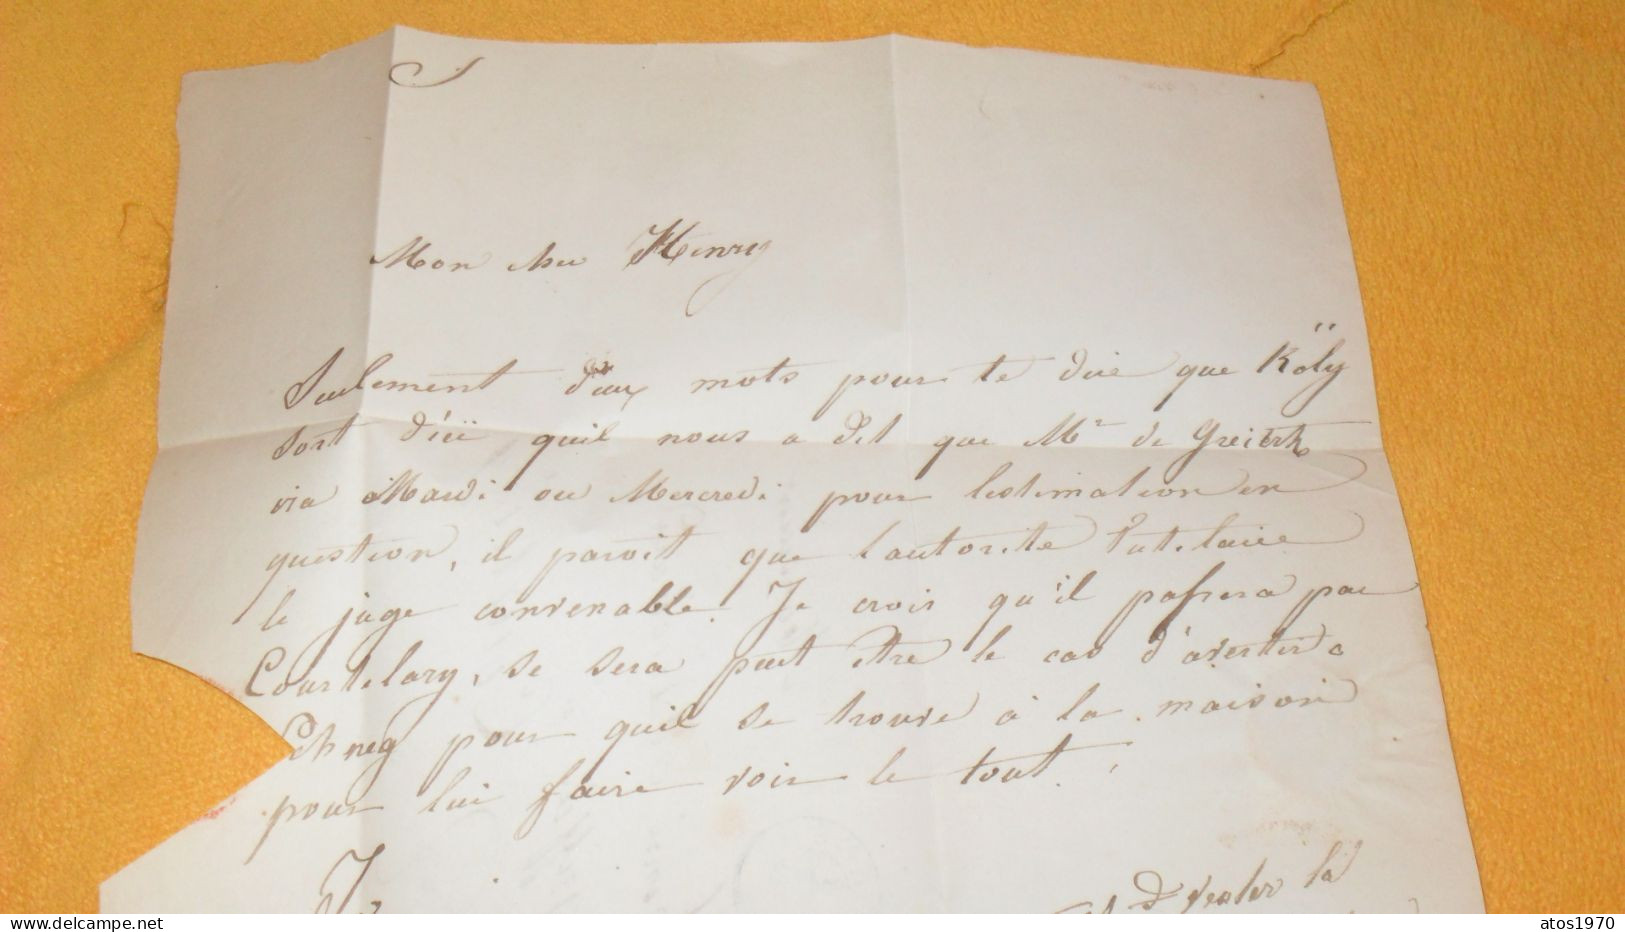 Mon cher Henry
Seulement deux mots pour te dire que Köly
sort d'ici quil nous a dit que Mr de Greierh
via Mardi ou Mercredi pour lestimation en
question, il paroit que l'autorite Tutelaire
le juge convenable. Je crois qu'il passera par
Courtelary, se sera peut être le cas d'avertir
Ehneg pour quil se trouve à la maison
pour lui faire voir le tout.
la
delcampe.net
atos1970